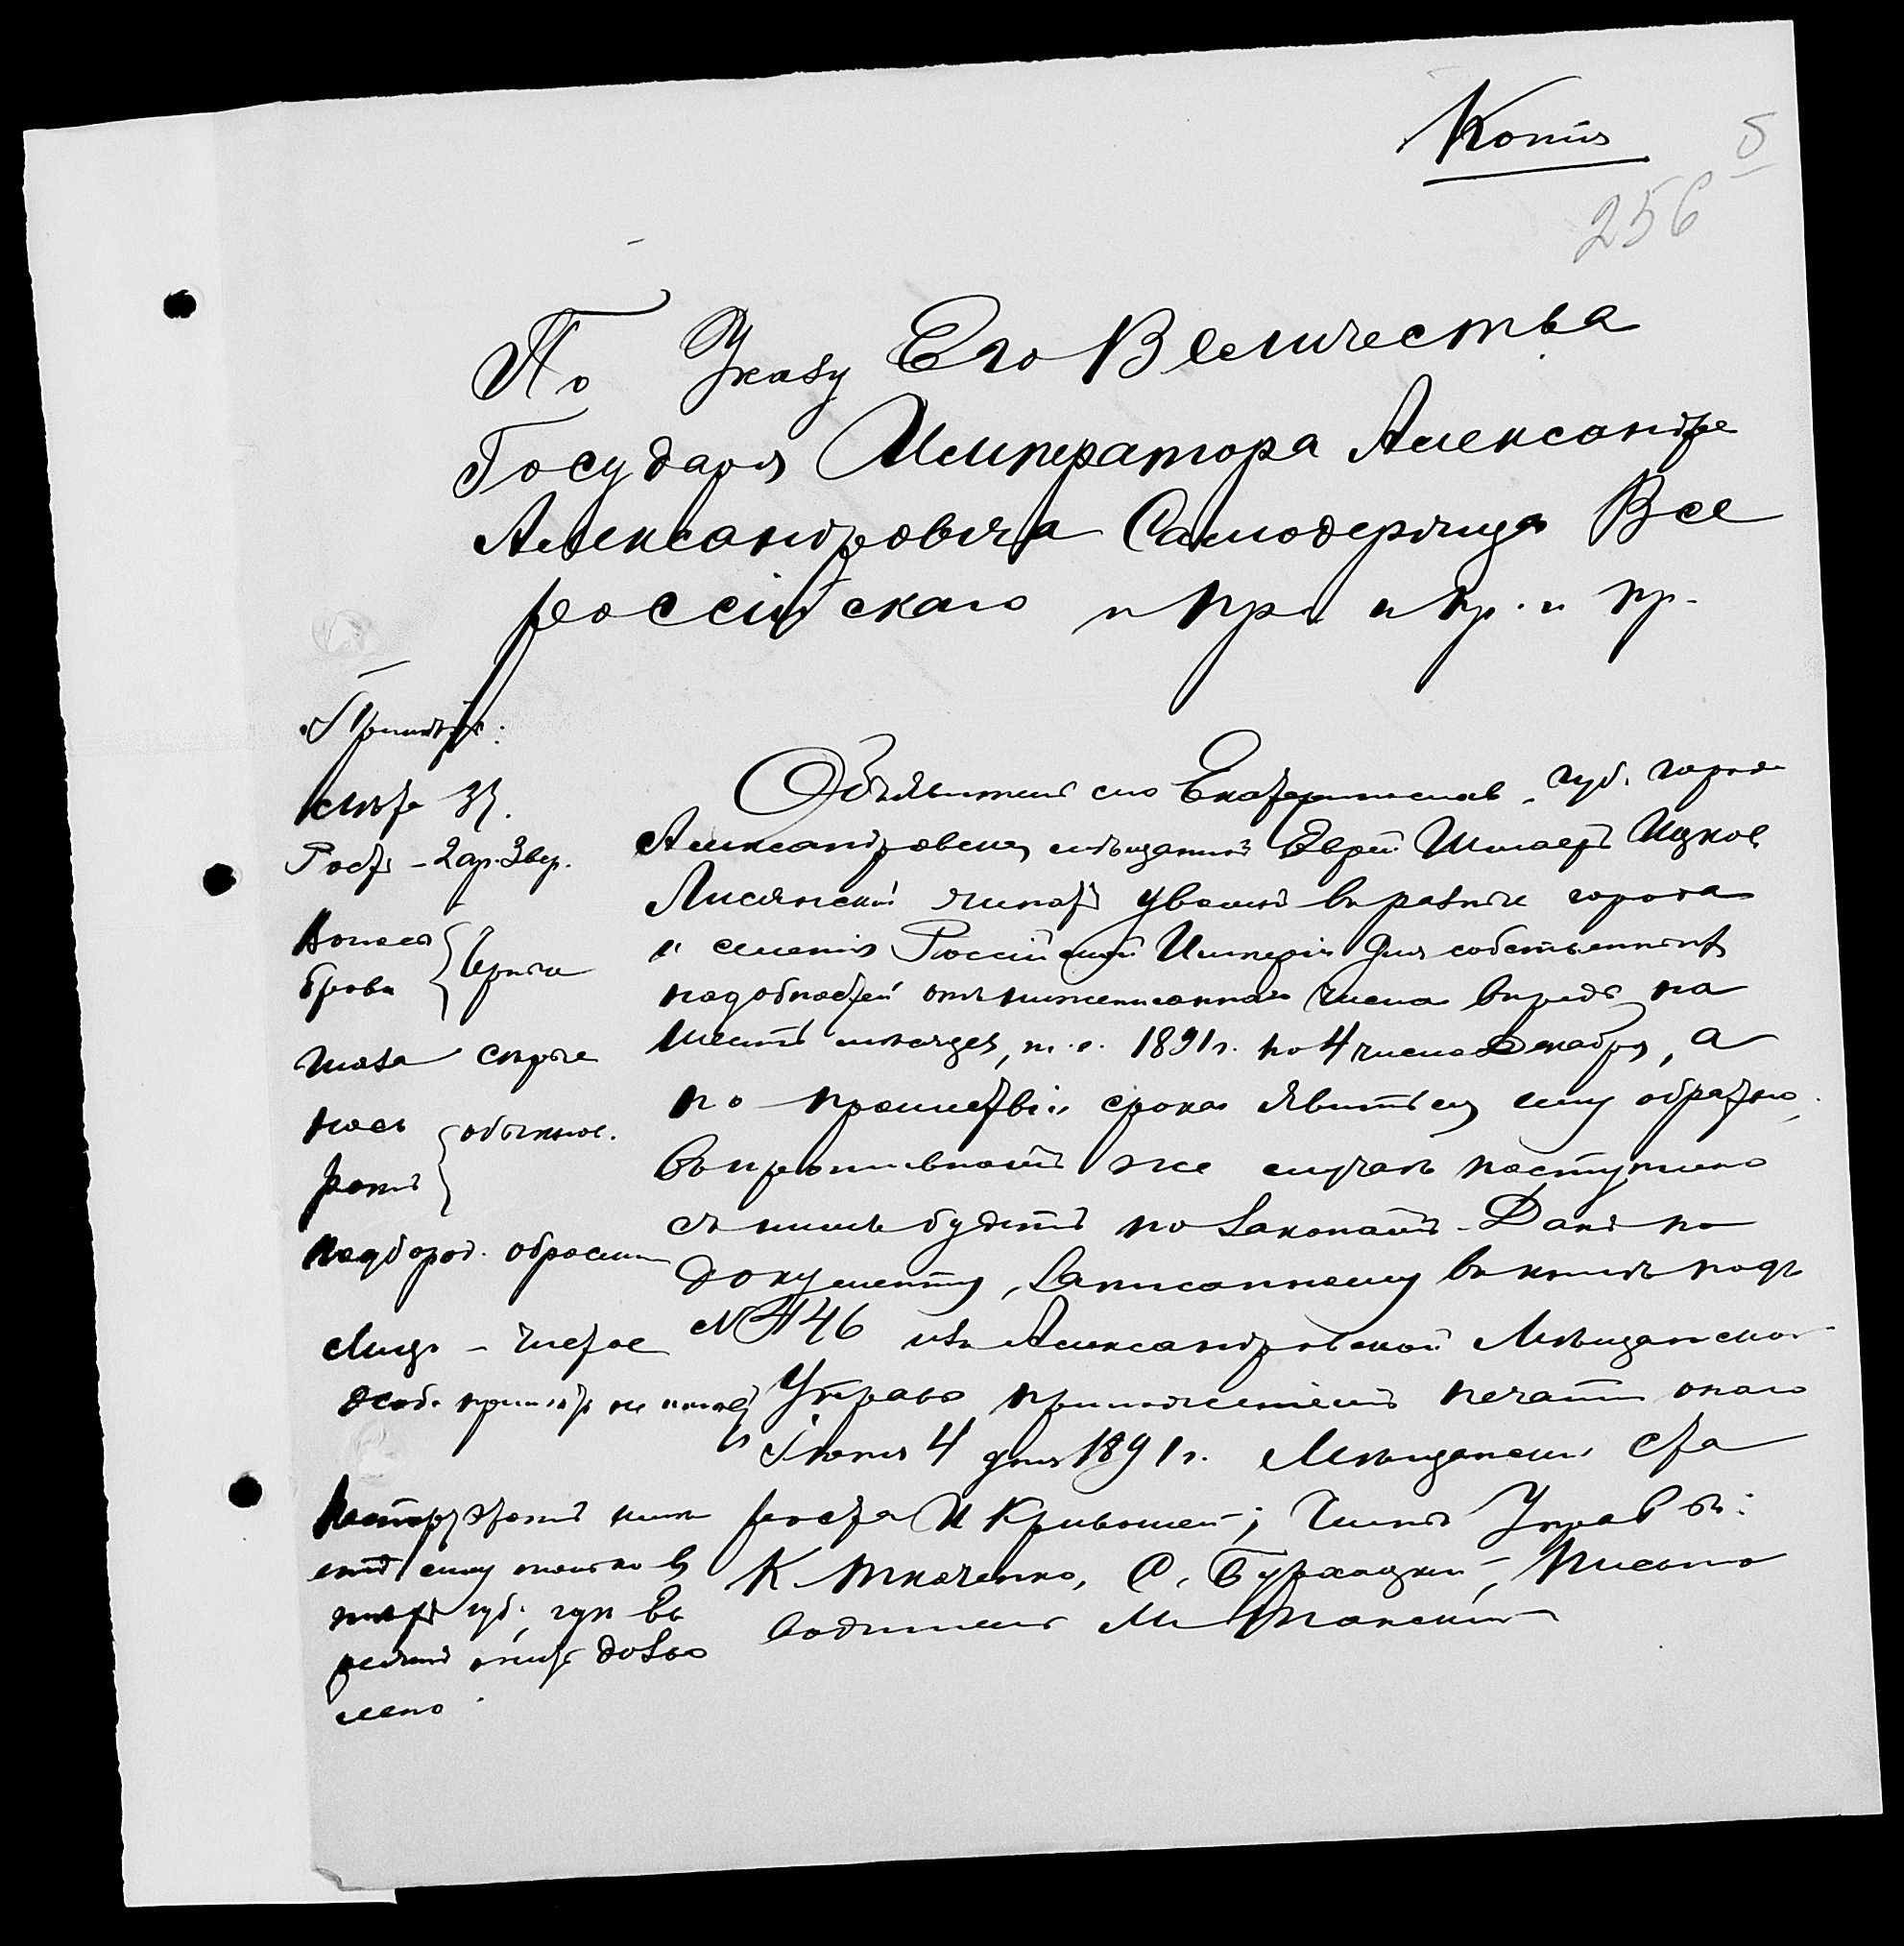 Копія
5
256
По Указу Его Величества
Государя Императора Александра
Александровича Самодержца Все
россійскаго и пр. и пр. и пр.
Приметы:
лѣта 37.
Ростъ - 2 ар. 3 вер.
Волоса
брови } Черные
глаза сѣрые
носъ
ротъ } обыкнов.
подбород. обросшій
Лице - чистое
Особ. примѣтъ не имѣетъ
Паспортъ этотъ
ему только въ
губ., гдѣ Ев
реямъ дозво
лено.
Объявитель сего Екатеринослав. губ. города
Александровска, мѣщанинъ Еврей Шмаеръ Ицков.
Лисянскій уволенъ въ разные города
и селенія Россійской Имперіи для собственныхъ
надобностей отъ нижеписаннаго числа впредь на
шесть мѣсяцевъ, т. е. 1891 г. по 4 число Декабря, а
по прошествіи срока явиться ему обратно,
въ противномъ же случаѣ поступлено
съ нимъ будетъ по Законамъ. Данъ по
документу, записанному въ книгѣ подъ
№ 446 изъ Александровской Мѣщанской
Управы приложеніемъ печати оной
Іюня 4 дня 1891 г. Мѣщанскій Ста
роста И Кривошей; Члены Управы:
К Ткаченко, С. Бурхацкій, Письмо
водитель М